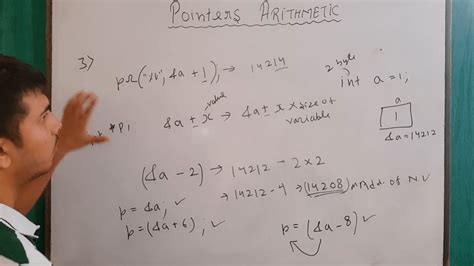 Pointers Arithmetic
3) pr("%u", &a + 1); → 14214
2 byte
int a = 1;
value
&a ± x → &a ± x * size of variable
a
1
&a = 14212
*p1
(&a - 2) → 14212 - 2 x 2
→ 14212 - 4 → 14208 → Add. of N.V
p = &a; ✓
p = (&a + 6); ✓
p = (&a - 8) ✓